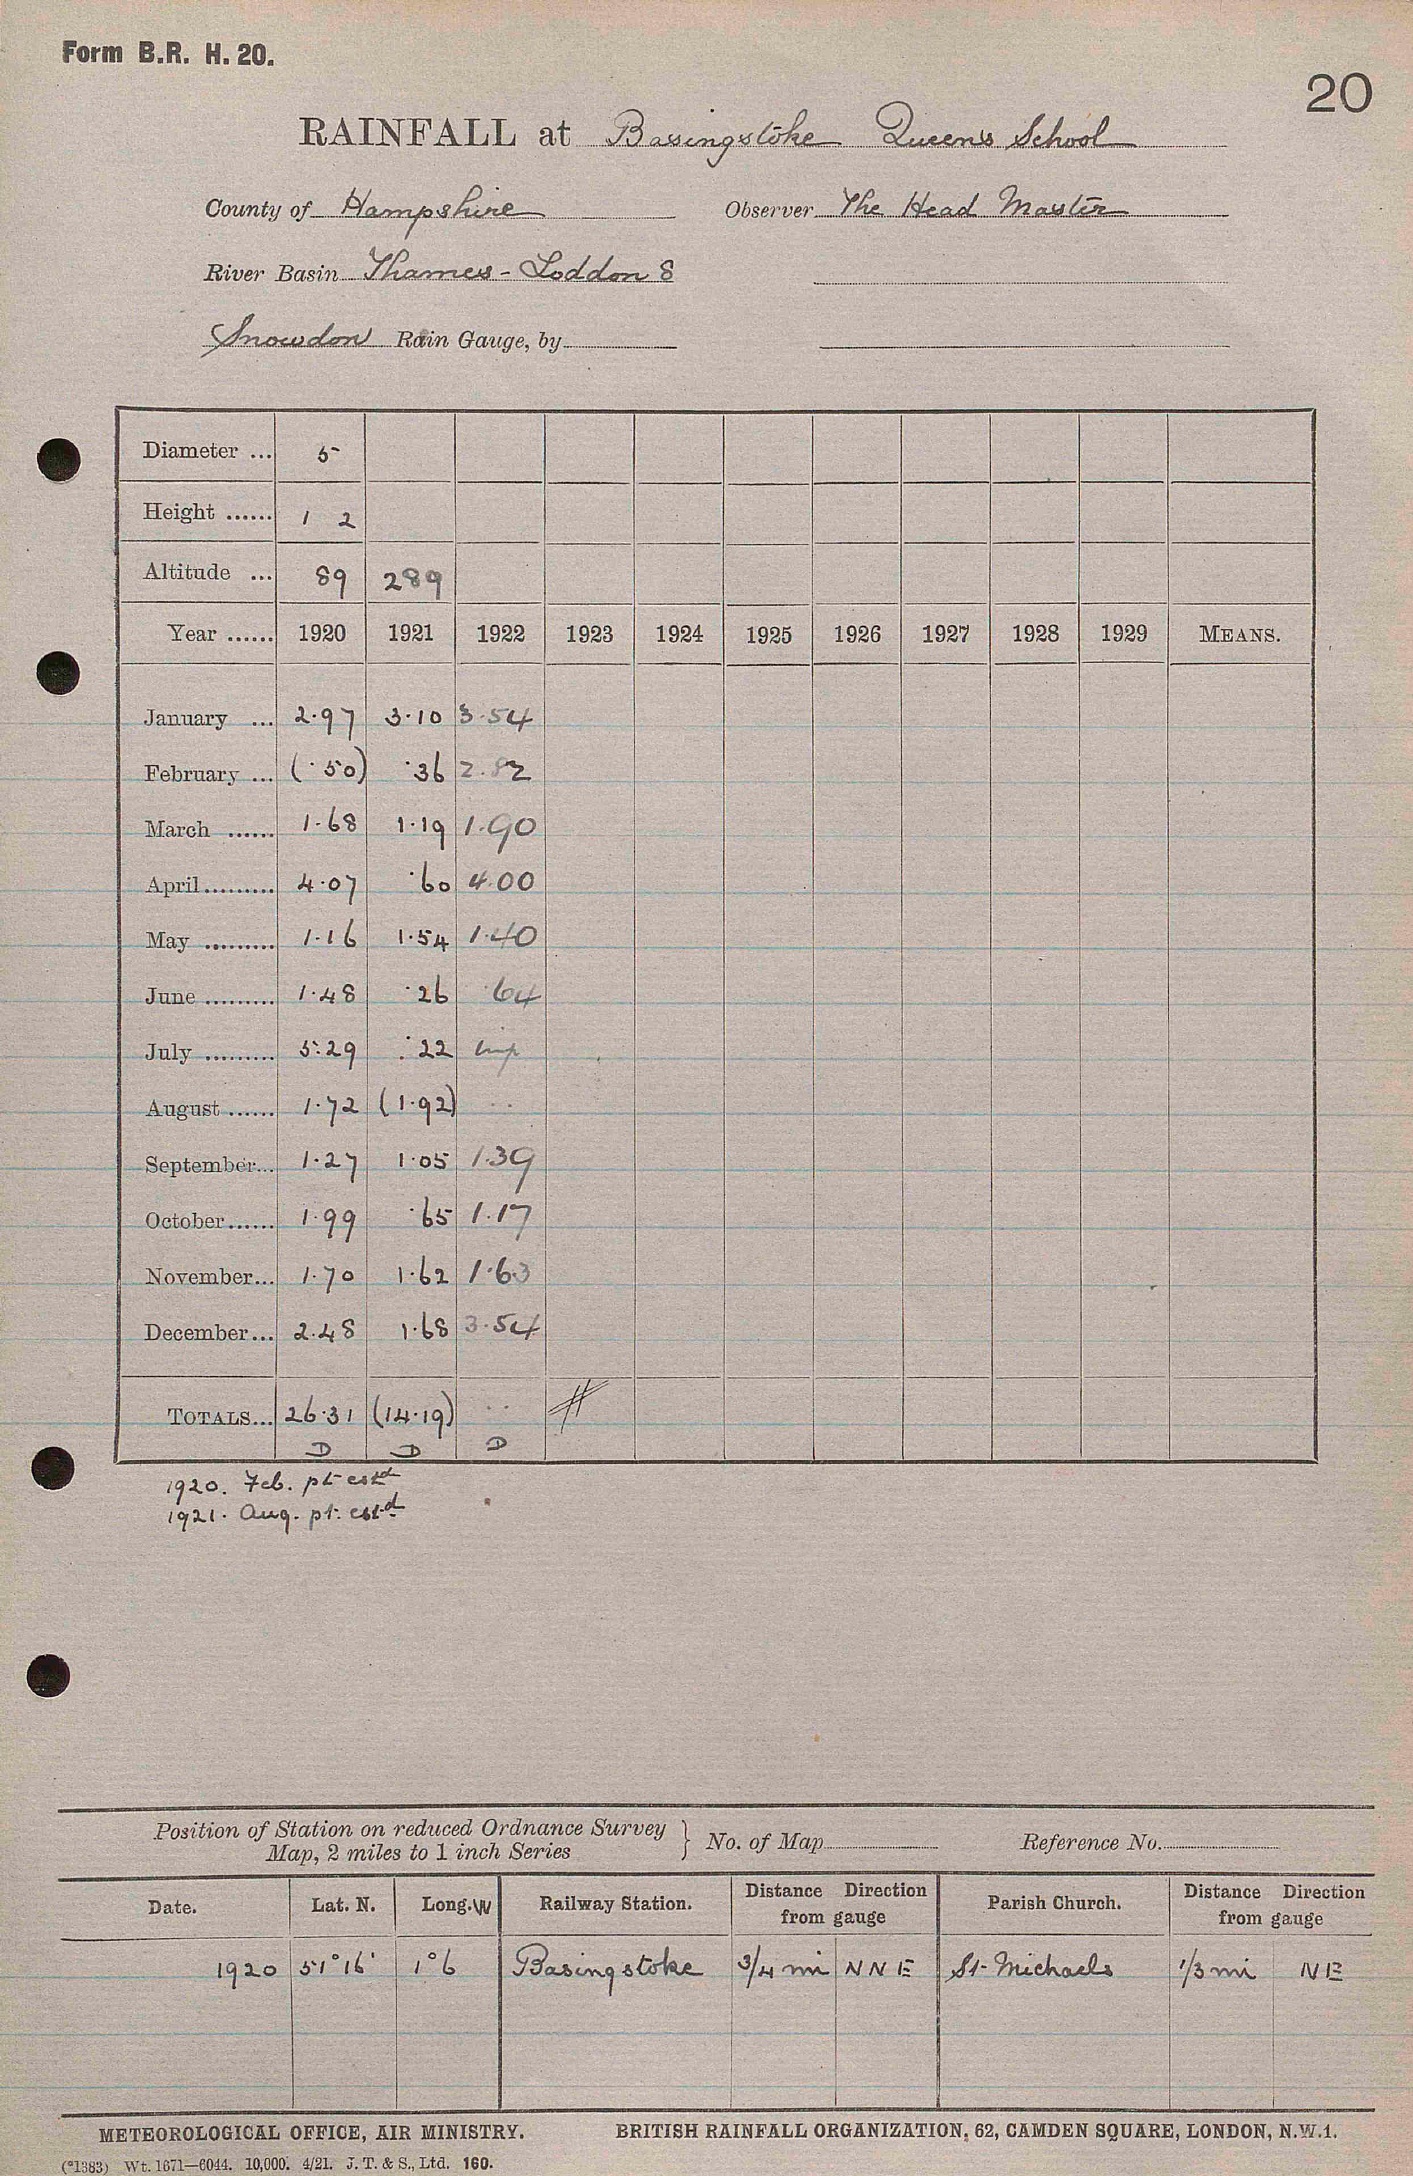 Form B.R. H. 20.
20
RAINFALL at Basingstoke Queen's School
County of Hampshire Observer The Head Master
River Basin Thames - Loddon 8
Snowdon Rain Gauge, by
Diameter ... 5
Height ...... 1 2
Altitude ... 89 289
Year ...... 1920 1921 1922 1923 1924 1925 1926 1927 1928 1929 MEANS.
January ... 2.97 3.10 3.54
February ... (.50) .36 2.82
March ...... 1.68 1.19 1.90
April ......... 4.07 .60 4.00
May ......... 1.16 1.54 1.40
June ......... 1.48 .26 .64
July ......... 5.29 .22 Imp
August ...... 1.72 (1.92) ..
September... 1.27 1.05 1.39
October...... 1.99 .65 1.17
November... 1.70 1.62 1.63
December... 2.48 1.68 3.54
TOTALS... 26.31 (14.19) ..
D D D
1920. Feb. pt estd
1921. Aug. pt. estd
Position of Station on reduced Ordnance Survey Map, 2 miles to 1 inch Series } No. of Map Reference No.
Date. Lat. N. Long. W Railway Station. Distance Direction from gauge Parish Church. Distance Direction from gauge
1920 51°16' 1°6 Basingstoke 3/4 mi NNE St. Michaels 1/3 mi NE
METEOROLOGICAL OFFICE, AIR MINISTRY. BRITISH RAINFALL ORGANIZATION, 62, CAMDEN SQUARE, LONDON, N.W.1.
(*1383) Wt. 1671—6044. 10,000. 4/21. J. T. & S., Ltd. 160.